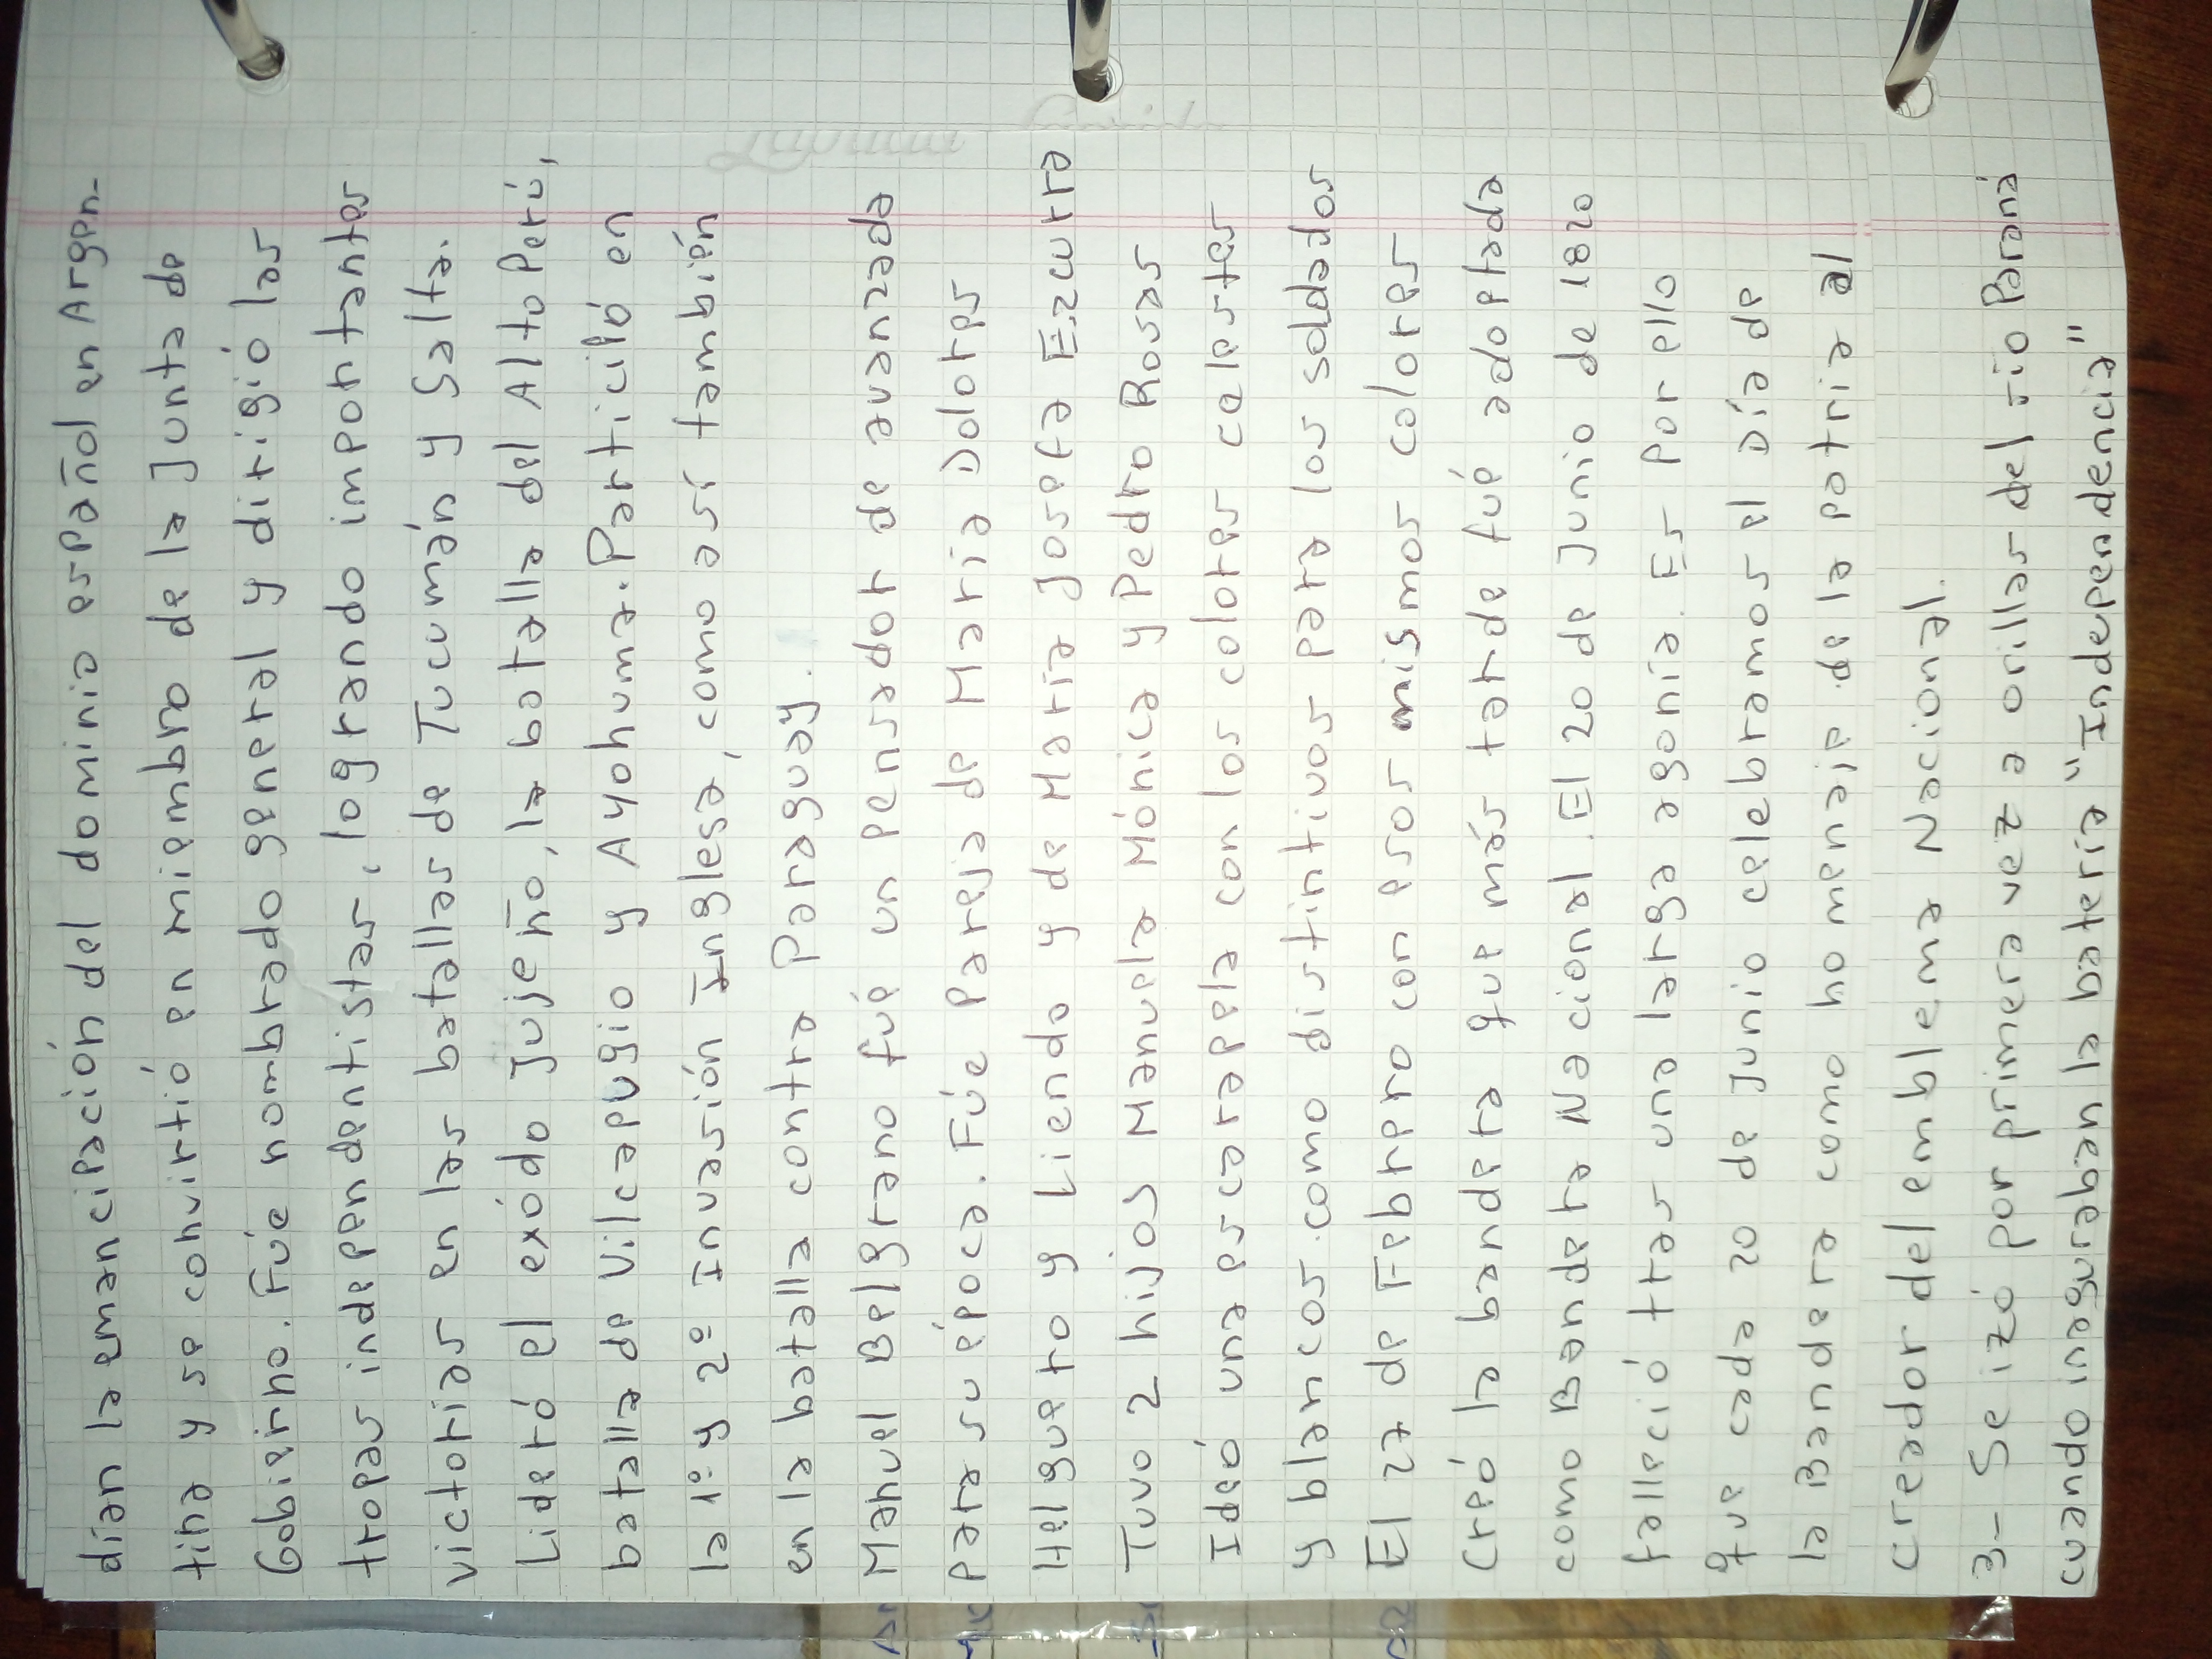 dían la emancipación del dominio español en Argen-
tina y se convirtió en miembro de la Junta de
Gobierno. Fúe nombrado general y dirigió las
tropas independentistas, logrando importantes
victorias en las batallas de Tucumán y Salta.
Lideró el exódo Jujeño, la batalla del Alto Perú,
batalla de Vilcapugio y Ayohuma. Participó en
la 1º y 2º Invasión Inglesa, como así también
en la batalla contra Paraguay.
Manuel Belgrano fué un pensador de avanzada
para su época. Fúe pareja de María Dolores
Helguero y Liendo y de María Josefa Ezcurra
Tuvo 2 hijos Manuela Mónica y Pedro Rosas
Ideó una escarapela con los colores celestes
y blancos. como distintivos para los soldados
El 27 de Febrero con esos mismos colores
Creó la bandera que más tarde fué adoptada
como Bandera Nacional. El 20 de Junio de 1820
falleció tras una larga agonía. Es por ello
que cada 20 de Junio celebramos el Día de
la Bandera como homenaje de la patria al
creador del emblema Nacional.
3- Se izó por primera vez a orillas del rio Paraná
cuando inaguraban la batería "Independencia"